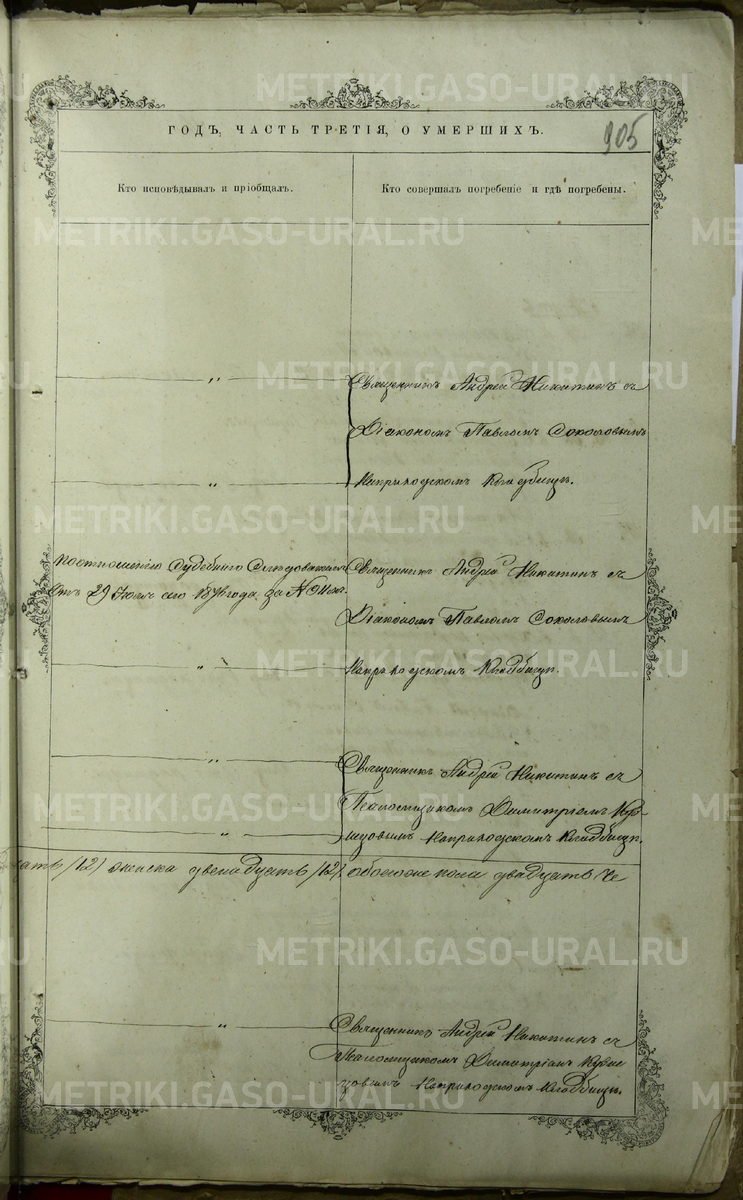 ГОДЪ, ЧАСТЬ ТРЕТІЯ, О УМЕРШИХЪ.
905
Кто исповѣдывалъ и пріобщалъ.
Кто совершалъ погребеніе и гдѣ погребены.
Священникъ Андрей Никитинъ съ
Діакономъ Павломъ Соколовымъ
Наприходскомъ Кладбищѣ.
Поотношенію Судебнаго Слѣдователя
Отъ 29 Іюля сего года за №
Священникъ Андрей Никитинъ съ
Діакономъ Павломъ Соколовымъ
Наприходскомъ Кладбищѣ.
Священникъ Андрей Никитинъ съ
Псаломщикомъ Димитріемъ
Наприходскомъ Кладбищѣ.
/12/ женска двенадцать /12/. обоегоже пола двадцать че
Священникъ Андрей Никитинъ съ
Псаломщикомъ Димитріемъ
Наприходскомъ Кладбищѣ.
METRIKI.GASO-URAL.RU